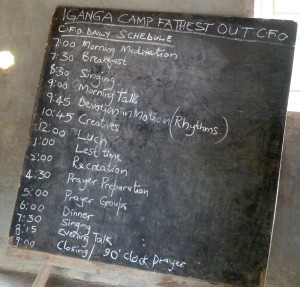 IGANGA CAMP FATHEST OUT CFO
CFO DAILY SCHEDULE
7:00 Morning Meditation
7:30 Breakfast
8:30 Singing
9:00 Morning Talk
9:45 Devotion in Motion (Rhythms)
10:45 Creatives
12:00 Luch
1:00 Lest time
2:00 Recreation
4:30 Prayer Preparation
5:00 Prayer Groups
6:00 Dinner
7:30 Singing
8:15 Evening Talk
9:00 Closing / 90' Clock Prayer